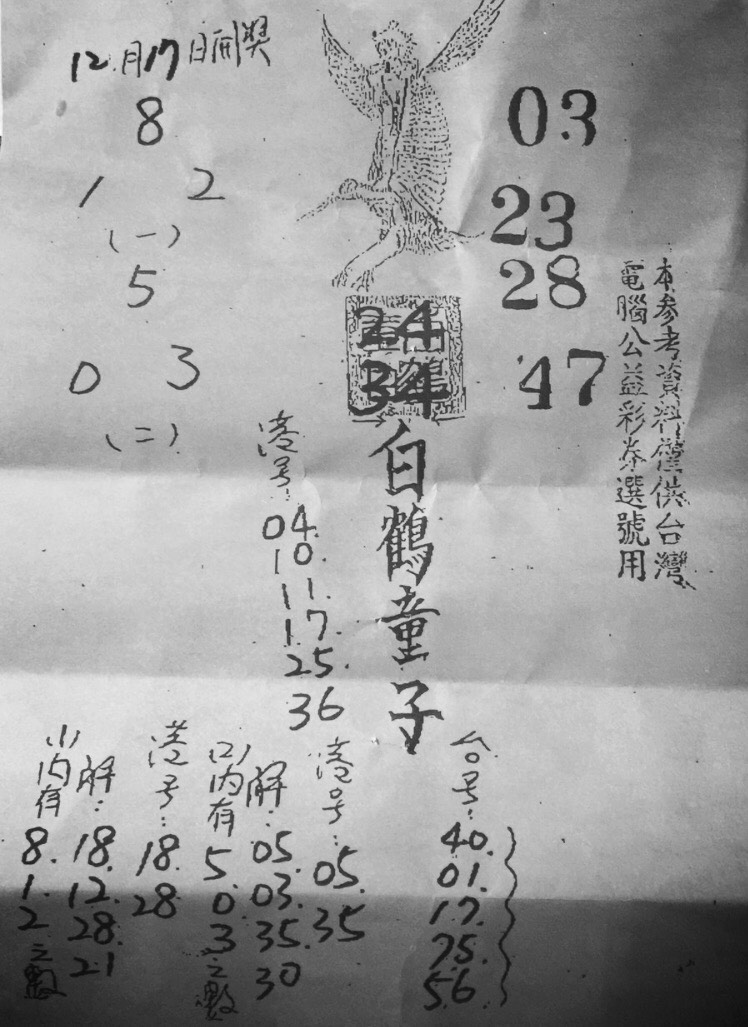 12月17日開獎
8
1 2
(一)
5
0 3
(二)
03
23
28
47
24
34
本參考資料僅供台灣
電腦公益彩券選號用
白鶴童子
港号:
04.
10.
11.
17.
25.
36
(1)内有
8.
1.
2
之數
解:
18.
12.
28.
21
港号:
18.
28
(2)内有
5
0
3
之數
解:
05.
03.
35.
30
港号:
05.
35
台号:
40.
01.
17.
75.
56.